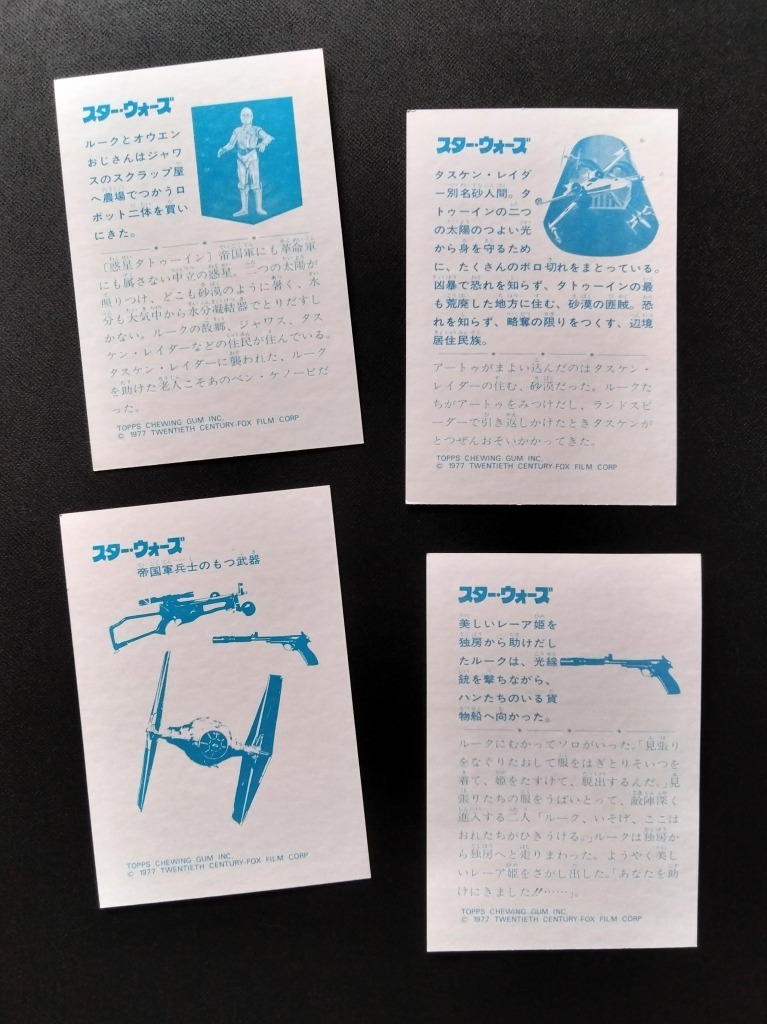 スター・ウォーズ
ルークとオウエン
おじさんはジャワ
スのスクラップ屋
へ農場でつかうロ
ボット二体を買い
にきた。
〔惑星タトゥーイン〕帝国軍にも革命軍
にも属さない中立の惑星。二つの太陽が
照りつけ、どこも砂漠のように暑く、水
分も大気中から水分凝結器でとりだすし
かない。ルークの故郷、ジャワス、タス
ケン・レイダーなどの住民が住んでいる。
タスケン・レイダーに襲われた、ルーク
を助けた老人こそあのベン・ケノービだ
った。
TOPPS CHEWING GUM INC.
© 1977 TWENTIETH CENTURY-FOX FILM CORP
スター・ウォーズ
タスケン・レイダ
ー別名砂人間。タ
トゥーインの二つ
の太陽のつよい光
から身を守るため
に、たくさんのボロ切れをまとっている。
凶暴で恐れを知らず、タトゥーインの最
も荒廃した地方に住む、砂漠の匪賊。恐
れを知らず、略奪の限りをつくす、辺境
居住民族。
アートゥがまよい込んだのはタスケン・
レイダーの住む、砂漠だった。ルークた
ちがアートゥをみつけだし、ランドスピ
ーダーで引き返しかけたときタスケンが
とつぜんおそいかかってきた。
TOPPS CHEWING GUM INC.
© 1977 TWENTIETH CENTURY-FOX FILM CORP
スター・ウォーズ
帝国軍兵士のもつ武器
TOPPS CHEWING GUM INC.
© 1977 TWENTIETH CENTURY-FOX FILM CORP
スター・ウォーズ
美しいレーア姫を
独房から助けだし
たルークは、光線
銃を撃ちながら、
ハンたちのいる貨
物船へ向かった。
ルークにむかってソロがいった。「見張り
をなぐりたおして服をはぎとりそいつを
着て、姫をたすけて、脱出するんだ。」見
張りたちの服をうばいとって、敵陣深く
進入する二人「ルーク、いそげ、ここは
おれたちがひきうける。」ルークは独房か
ら独房へと走りまわった。ようやく美し
いレーア姫をさがし出した。「あなたを助
けにきました!!……」。
TOPPS CHEWING GUM INC.
© 1977 TWENTIETH CENTURY-FOX FILM CORP